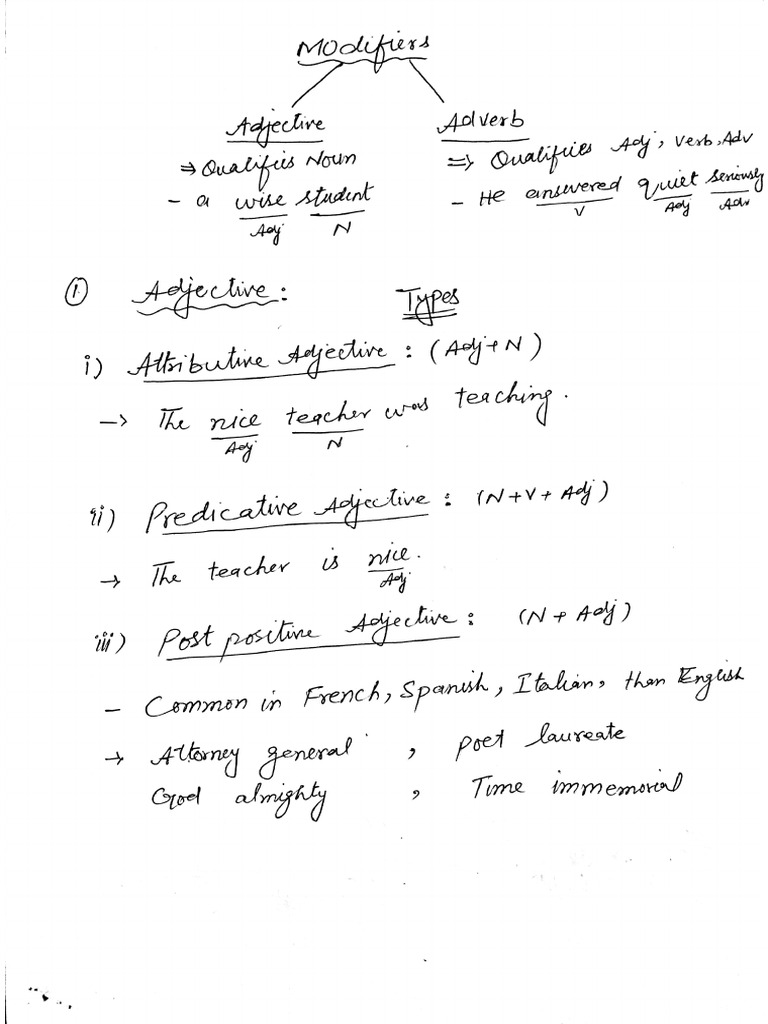 Modifiers
Adjective
Adverb
⇒ Qualifies Noun
⇒ Qualifies Adj, Verb, Adv
- a wise student
Adj N
- He answered quiet seriously
V Adj Adv
① Adjective : Types
i) Attributive Adjective : (Adj+N)
→ The nice teacher was teaching.
Adj N
ii) Predicative Adjective : (N+V+Adj)
→ The teacher is nice.
Adj
iii) Post positive Adjective : (N+Adj)
- Common in French, Spanish, Italian, than English
→ Attorney general , poet laureate
God almighty , Time immemorial